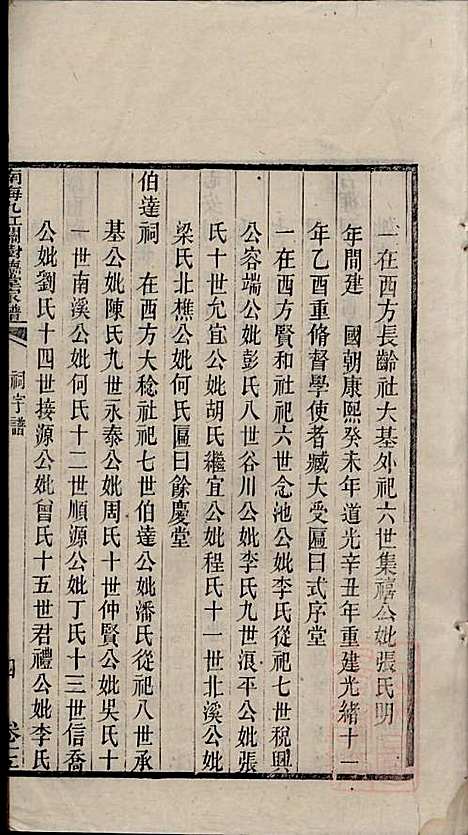 一在西方長齡社大基外祀六世集禧公妣張氏明
年間建　國朝康熙癸未年道光辛丑年重建光緒十一
年乙酉重脩督學使者臧大受匾曰式序堂
一在西方賢和社祀六世念池公妣李氏從祀七世稅興
公容端公妣彭氏八世谷川公妣李氏九世浪平公妣張
氏十世允宜公妣胡氏繼宜公妣程氏十一世北溪公妣
梁氏北樵公妣何氏匾曰餘慶堂
伯達祠　在西方大稔社祀七世伯達公妣潘氏從祀八世承
基公妣陳氏九世永泰公妣周氏十世仲賢公妣吳氏十
一世南溪公妣何氏十二世順源公妣丁氏十三世信喬
公妣劉氏十四世接源公妣曾氏十五世君禮公妣李氏
南海九江關樹德堂家譜　祠宇譜　四　卷十五